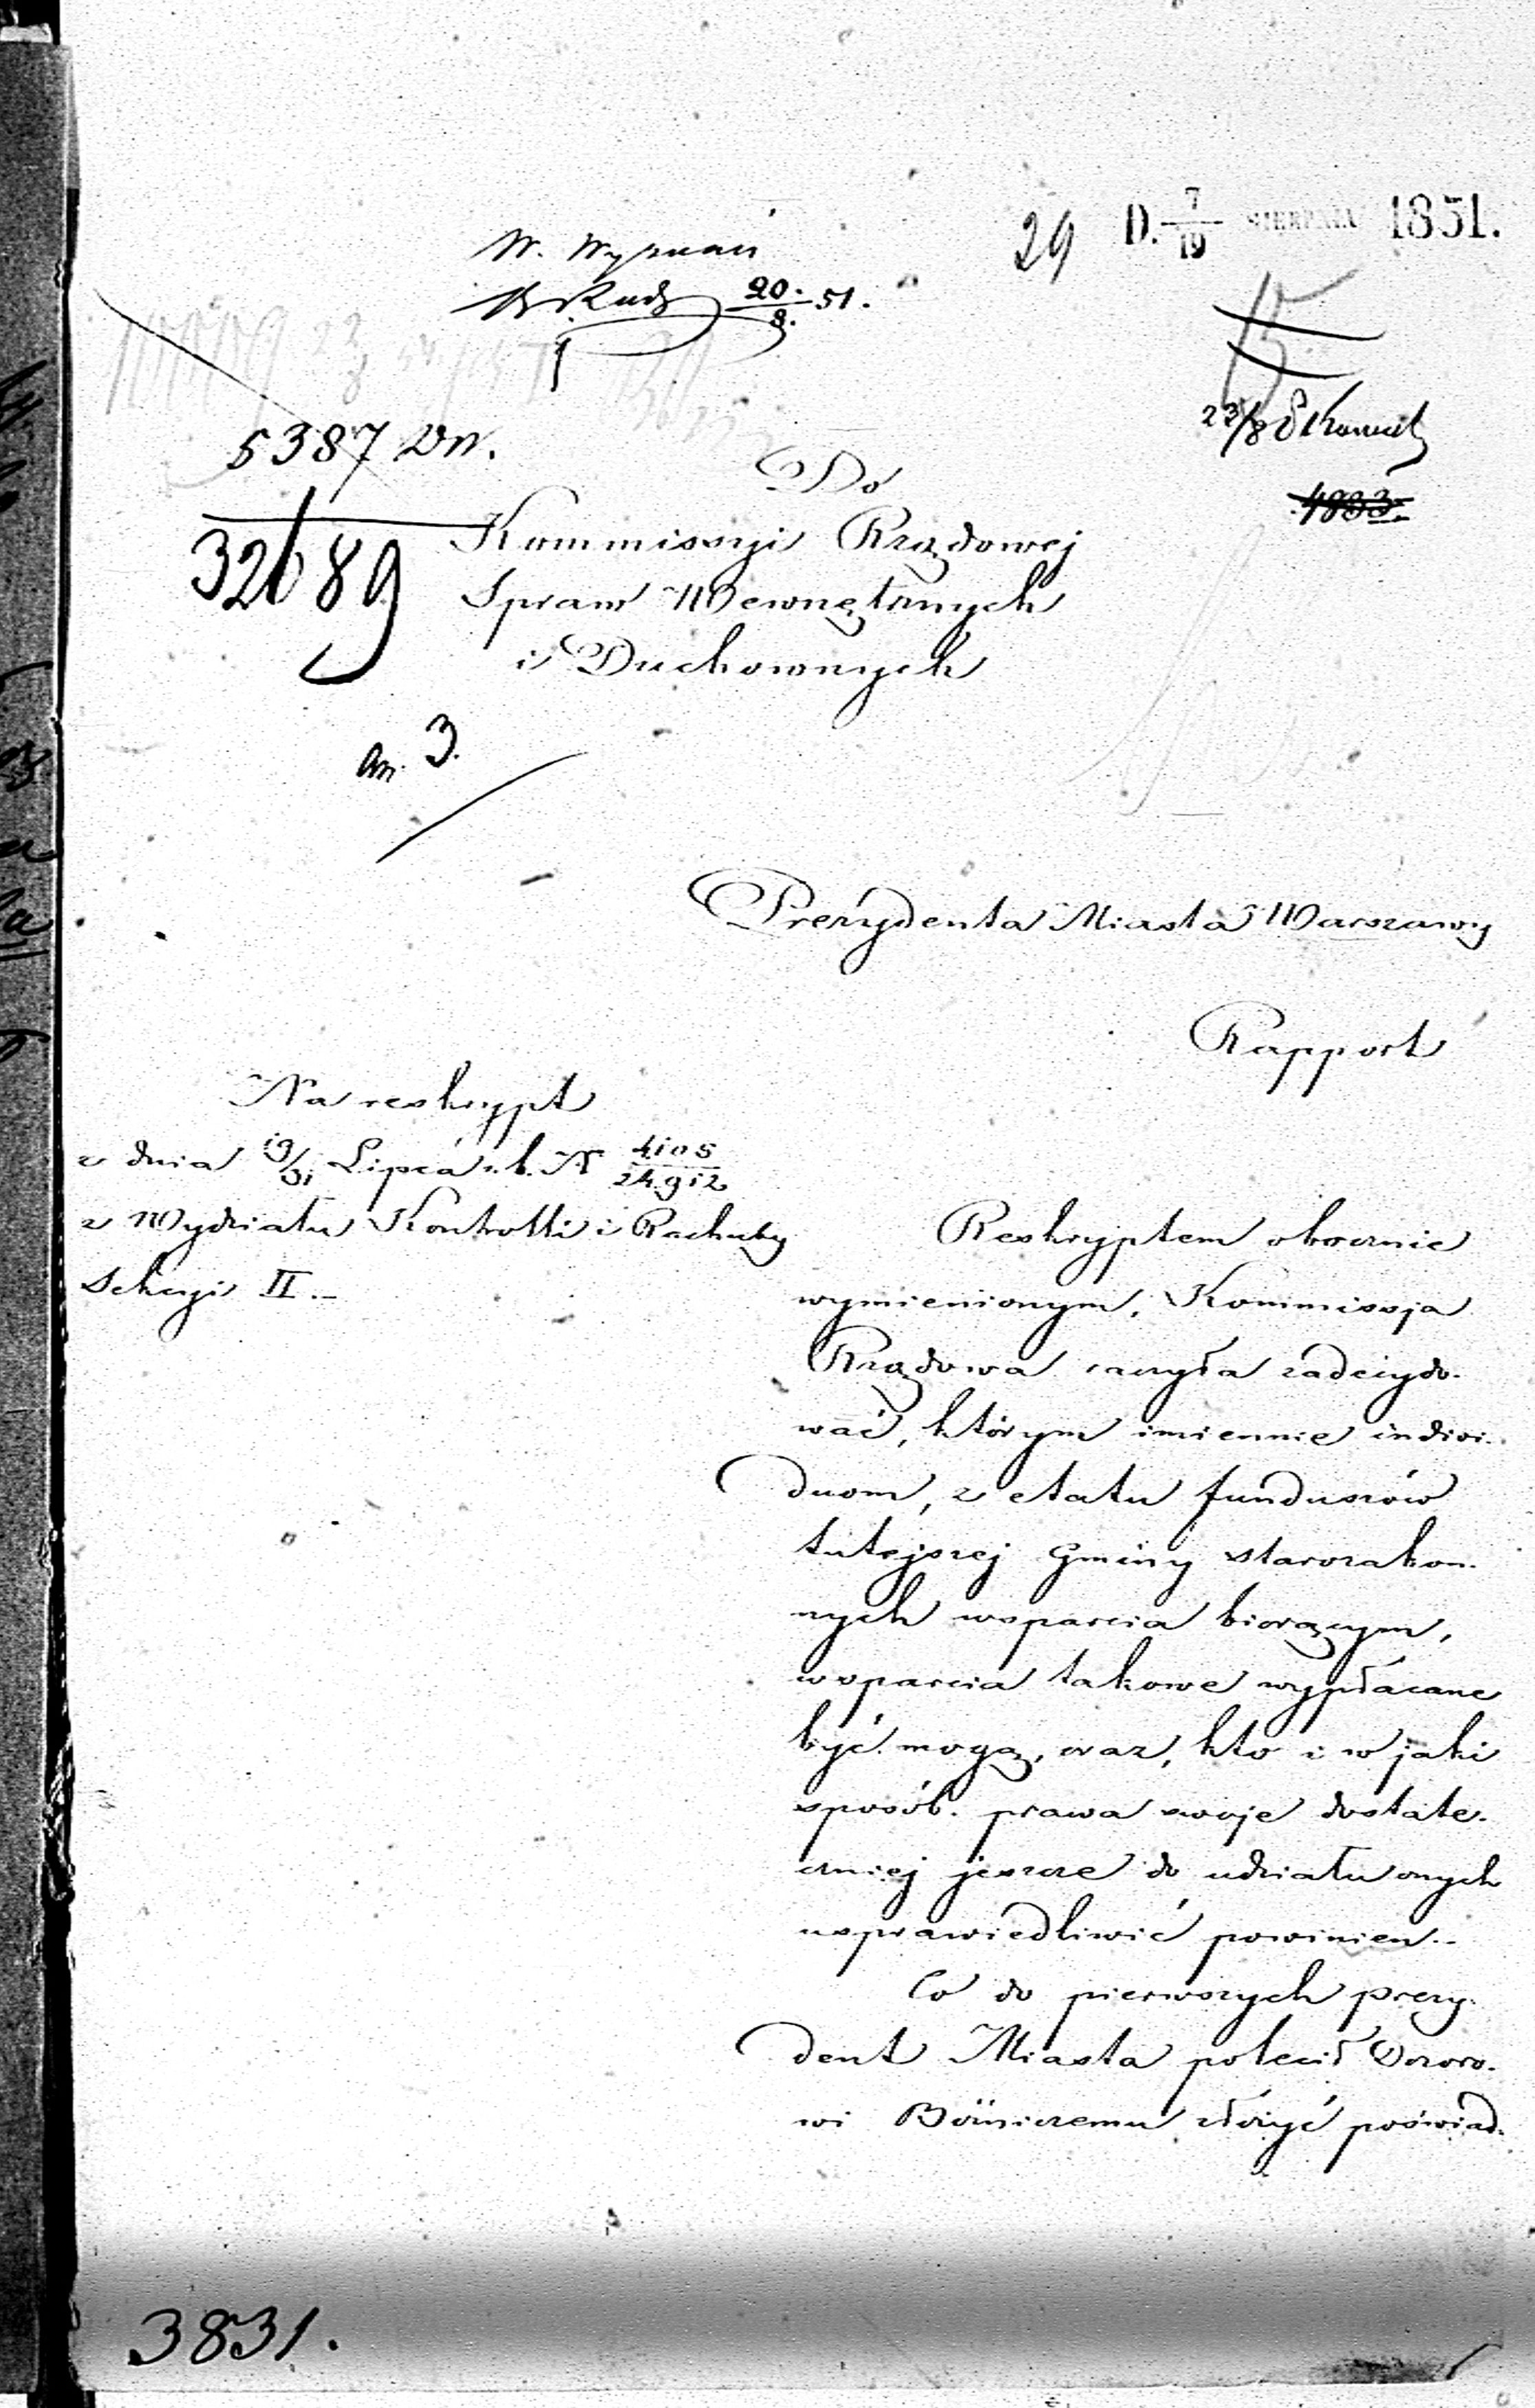 29 D. 7/19 SIERPNIA 1851.
W. Wyznań
20./8. 51.
23/8
5387 Wn.
4833.
32689
Do
Kommissyi Rządowej
Spraw Wewnętrznych
i Duchownych
an. 3.
Prezydenta Miasta Warszawy
Rapport
Na reskrypt
z dnia 19/31 Lipca r. b. N 4105/24.912
z Wydziału Kontrolli i Rachuby
Sekcyi II.-
Reskryptem obocznie
wymienionym, Kommissja
Rządowa raczyła zadecydo-
wać, którym imiennie indivi-
duom, z etatu funduszów
tutejszej Gminy starozakon-
nych wsparcia biorącym,
wsparcia takowe wypłacane
być mogą, oraz, kto i w jaki
sposób prawa swoje dostate-
czniej jeszcze do udziału onych
usprawiedliwić powinien.-
Co do pierwszych prezy-
dent Miasta polecił Dozoro-
wi Bóżniczemu złożyć poświad-
3831.